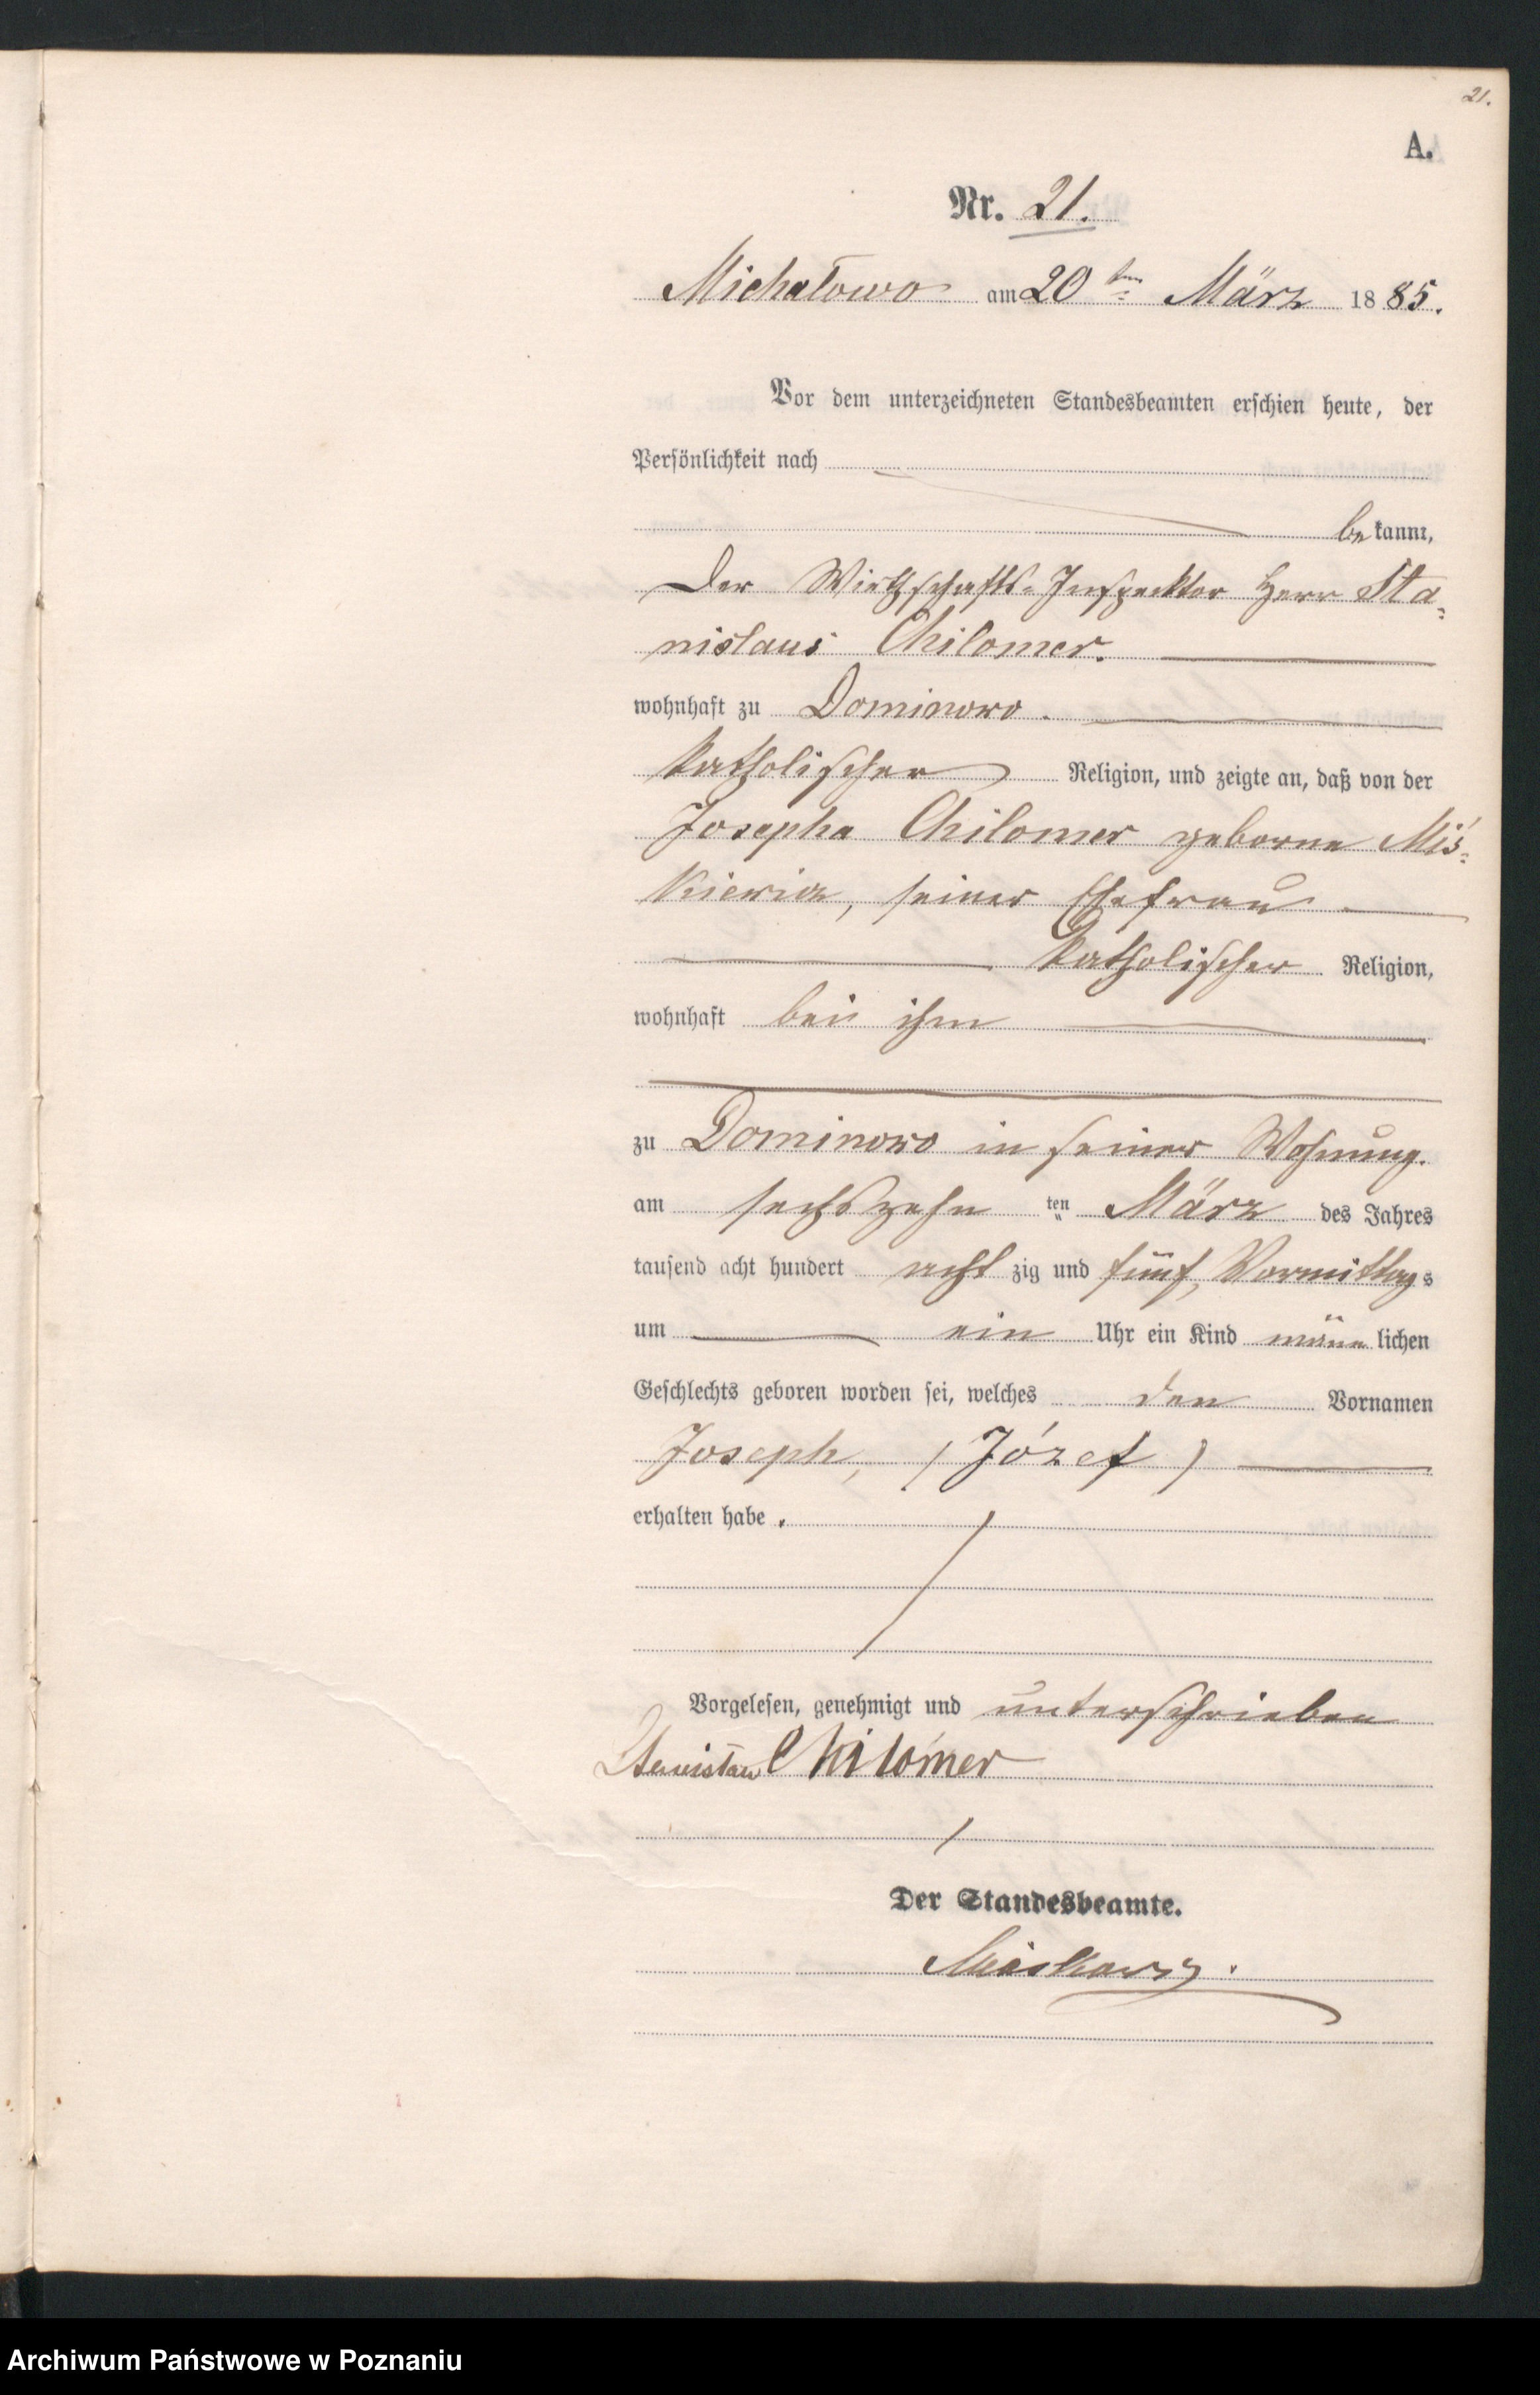 21.
A.
Nr. 21.
Michałowo am 20ten März 1885.
Vor dem unterzeichneten Standesbeamten erschien heute, der
Persönlichkeit nach
bekannt,
Der Wirthschafts-Inspecktor Herr Sta-
nislaus Chilomer.
wohnhaft zu Dominowo.
katholischer Religion, und zeigte an, daß von der
Josepha Chilomer geborne Miś-
kiewicz, seiner Ehefrau
katholischer Religion,
wohnhaft bei ihm
zu Dominowo in seiner Wohnung.
am sechszehn ten März des Jahres
tausend acht hundert acht zig und fünf, Vormittags
um ein Uhr ein Kind männlichen
Geschlechts geboren worden sei, welches den Vornamen
Joseph, (Józef)
erhalten habe.
Vorgelesen, genehmigt und unterschrieben
Stanisław Chilomer
Der Standesbeamte.
Archiwum Państwowe w Poznaniu